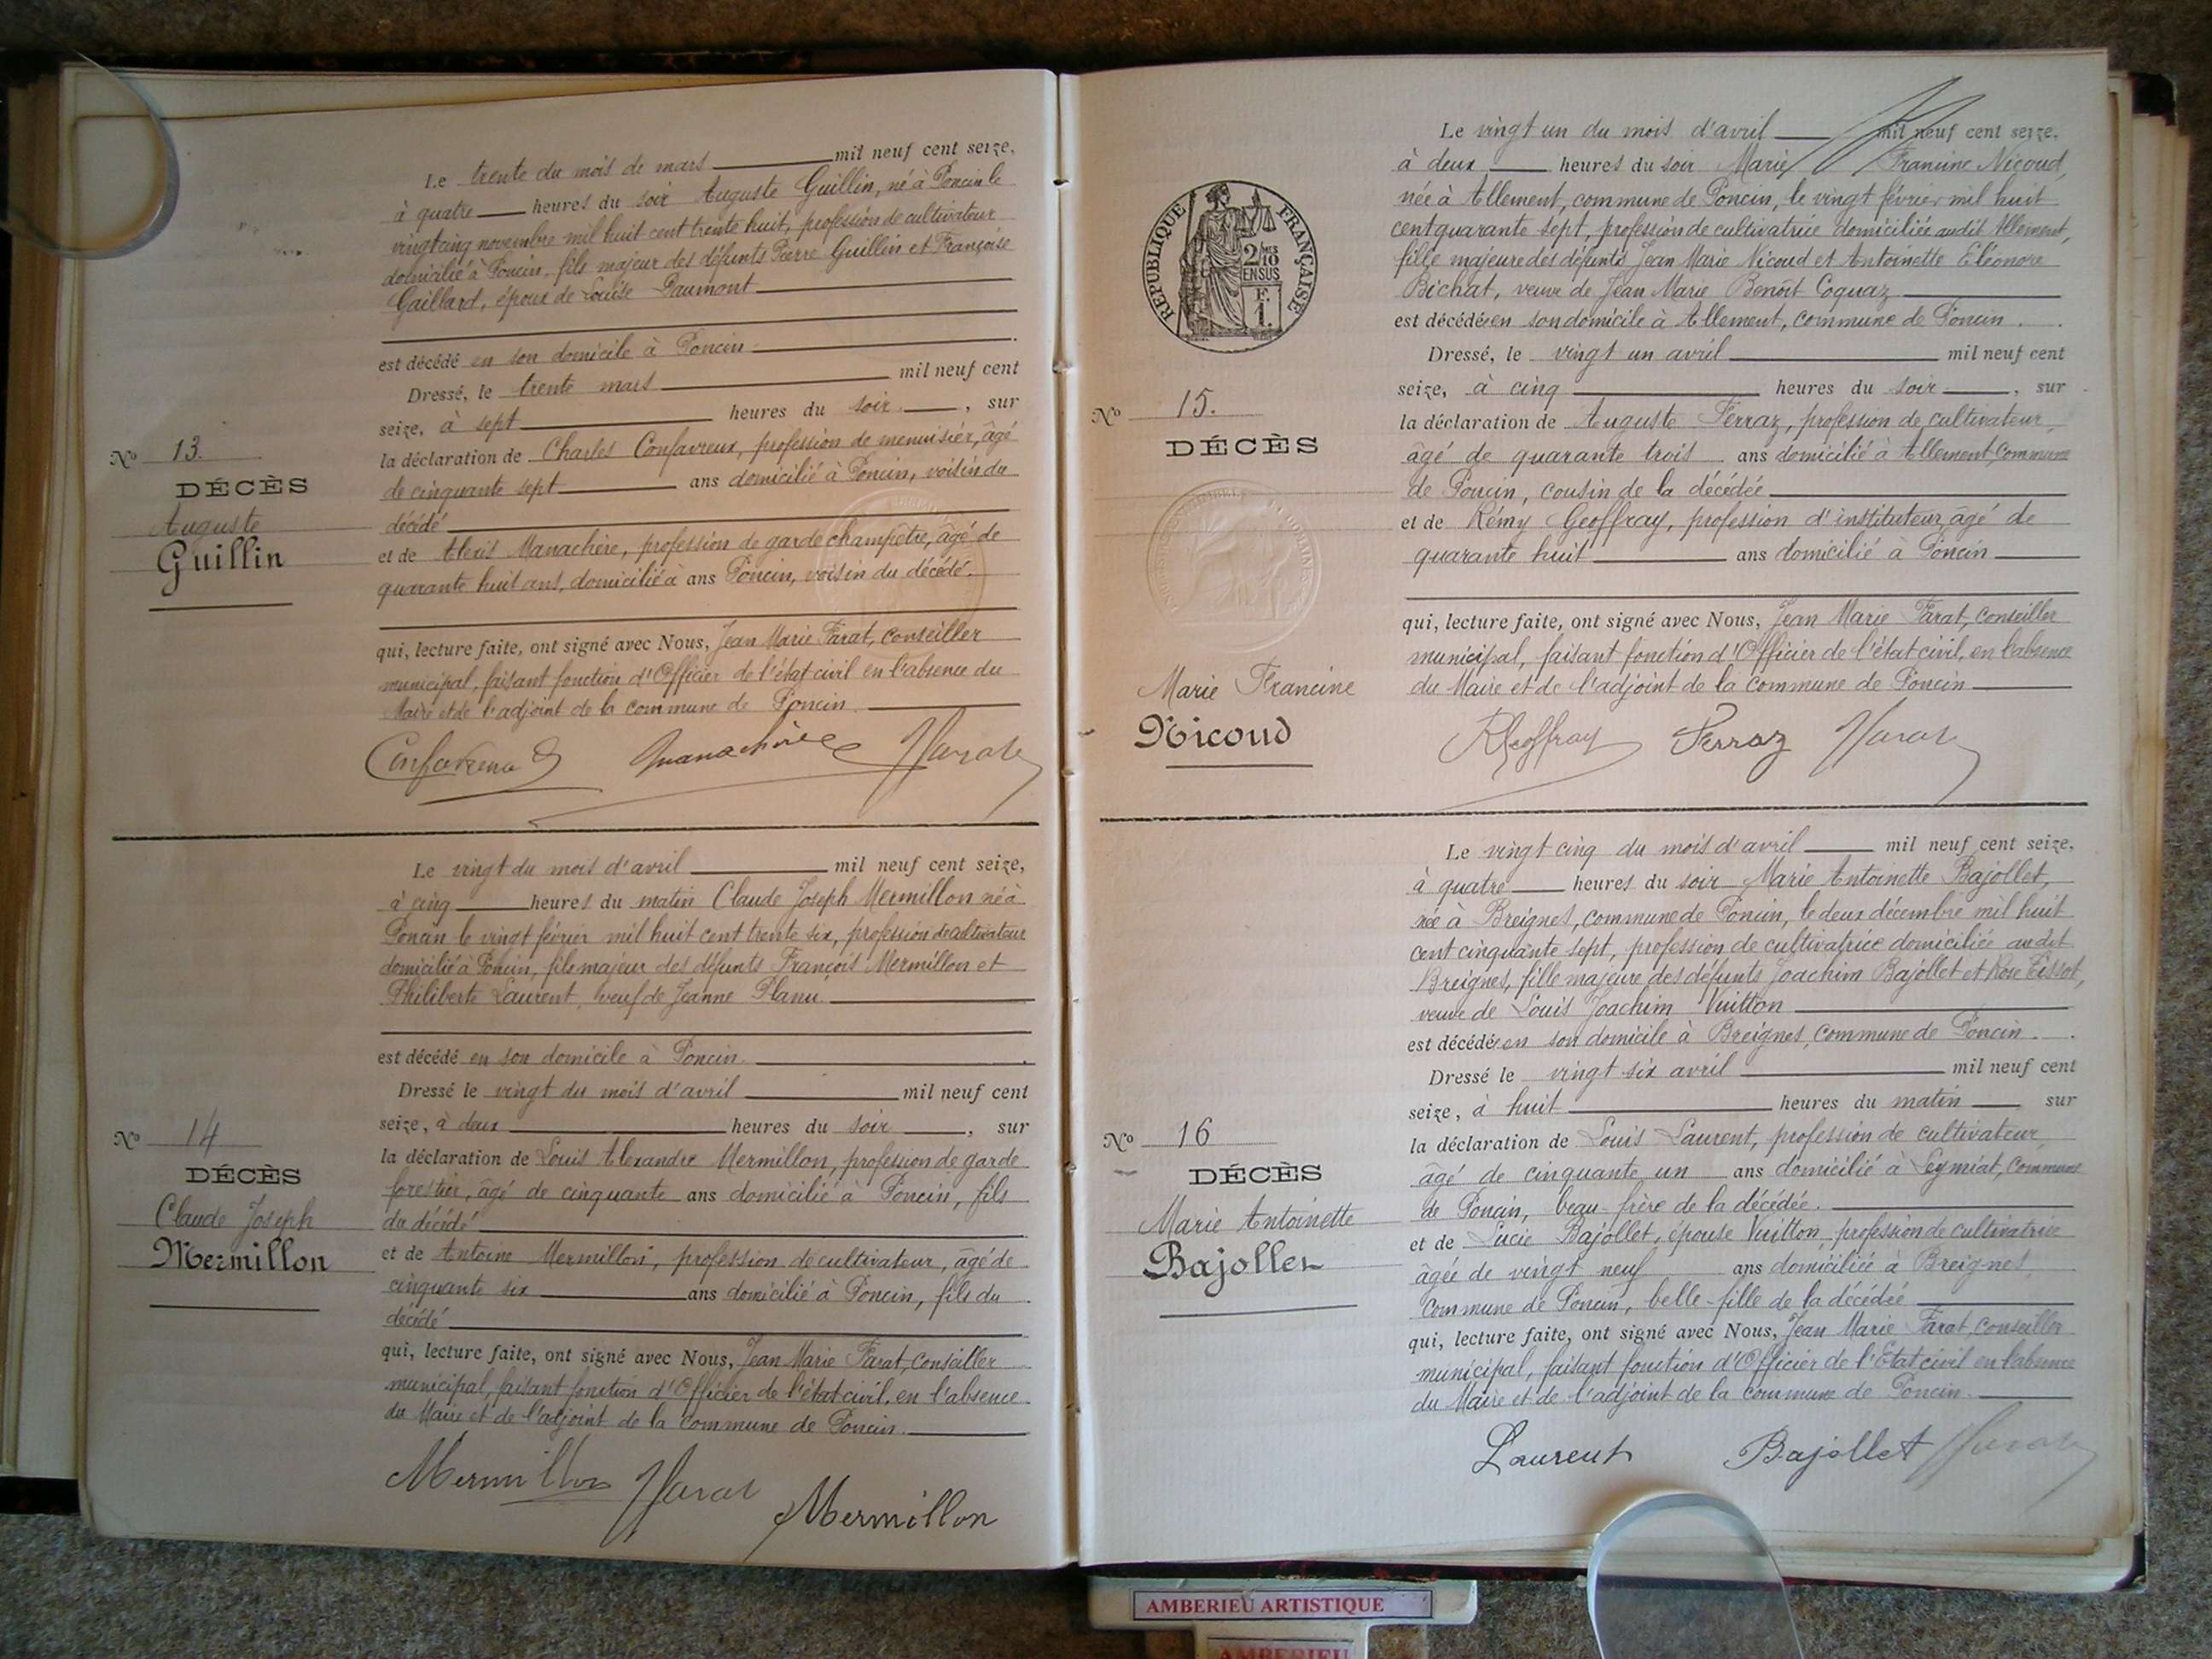 Le trente du mois de mars mil neuf cent seize,
à quatre heures du soir Auguste Guillin, né à Poncin le
vingt cinq novembre mil huit cent trente huit, profession de cultivateur
domicilié à Poncin, fils majeur des défunts Pierre Guillin et Françoise
Gaillard, époux de Louise Daumont
est décédé en son domicile à Poncin.
Dressé, le trente mars mil neuf cent
seize, à sept heures du soir, sur
la déclaration de Charles Confavreux, profession de menuisier, âgé
de cinquante sept ans domicilié à Poncin, voisin du
décédé
et de Alexis Manachère, profession de garde champêtre, âgé de
quarante huit ans, domicilié à ans Poncin, voisin du décédé.
qui, lecture faite, ont signé avec Nous, Jean Marie Farat, conseiller
municipal, faisant fonction d'Officier de l'état civil en l'absence du
Maire et de l'adjoint de la commune de Poncin.
Nº 13.
DÉCÈS
Auguste
Guillin
Manachère Farat
Le vingt du mois d'avril mil neuf cent seize,
à cinq heures du matin Claude Joseph Mermillon né à
Poncin le vingt février mil huit cent trente six, profession de cultivateur
domicilié à Poncin, fils majeur des défunts François Mermillon et
Philiberte Laurent, veuf de Jeanne Planu.
est décédé en son domicile à Poncin.
Dressé le vingt du mois d'avril mil neuf cent
seize, à deux heures du soir, sur
la déclaration de Louis Alexandre Mermillon, profession de garde
forestier, âgé de cinquante ans domicilié à Poncin, fils
du décédé
et de Antoine Mermillon, profession de cultivateur, âgé de
cinquante six ans domicilié à Poncin, fils du
décédé
qui, lecture faite, ont signé avec Nous, Jean Marie Farat, conseiller
municipal, faisant fonction d'Officier de l'état civil, en l'absence
du Maire et de l'adjoint de la commune de Poncin.
Nº 14
DÉCÈS
Claude Joseph
Mermillon
Mermillon Farat
Mermillon
RÉPUBLIQUE FRANÇAISE
2/10MES
EN SUS
F.
1.
Le vingt un du mois d'avril mil neuf cent seize,
à deux heures du soir Marie Francine Nicoud,
née à Allement, commune de Poncin, le vingt février mil huit
cent quarante sept, profession de cultivatrice domiciliée audit Allement,
fille majeure des défunts Jean Marie Nicoud et Antoinette Eléonore
Bichat, veuve de Jean Marie Benoît Coquaz
est décédée en son domicile à Allement, commune de Poncin.
Dressé, le vingt un avril mil neuf cent
seize, à cinq heures du soir, sur
la déclaration de Auguste Ferraz, profession de cultivateur,
âgé de quarante trois ans domicilié à Allement, commune
de Poncin, cousin de la décédée
et de Rémy Geoffray, profession d'instituteur, âgé de
quarante huit ans domicilié à Poncin
qui, lecture faite, ont signé avec Nous, Jean Marie Farat, conseiller
municipal, faisant fonction d'Officier de l'état civil, en l'absence
du Maire et de l'adjoint de la commune de Poncin
Nº 15.
DÉCÈS
Marie Francine
Nicoud
RGeoffray Ferraz Farat
Le vingt cinq du mois d'avril mil neuf cent seize,
à quatre heures du soir Marie Antoinette Bajollet,
née à Breignes, commune de Poncin, le deux décembre mil huit
cent cinquante sept, profession de cultivatrice domiciliée audit
Breignes, fille majeure des défunts Joachim Bajollet et Rose Tissot,
veuve de Louis Joachim Vuitton
est décédée en son domicile à Breignes, commune de Poncin.
Dressé le vingt six avril mil neuf cent
seize, à huit heures du matin sur
la déclaration de Louis Laurent, profession de cultivateur,
âgé de cinquante un ans domicilié à Leymiat, commune
de Poncin, beau-frère de la décédée.
et de Lucie Bajollet, épouse Vuitton, profession de cultivatrice
âgée de vingt neuf ans domiciliée à Breignes,
commune de Poncin, belle-fille de la décédée
qui, lecture faite, ont signé avec Nous, Jean Marie Farat, conseiller
municipal, faisant fonction d'Officier de l'Etat civil en l'absence
du Maire et de l'adjoint de la commune de Poncin.
Nº 16
DÉCÈS
Marie Antoinette
Bajollet
Laurent Bajollet Farat
AMBERIEU ARTISTIQUE
AMBERIEU